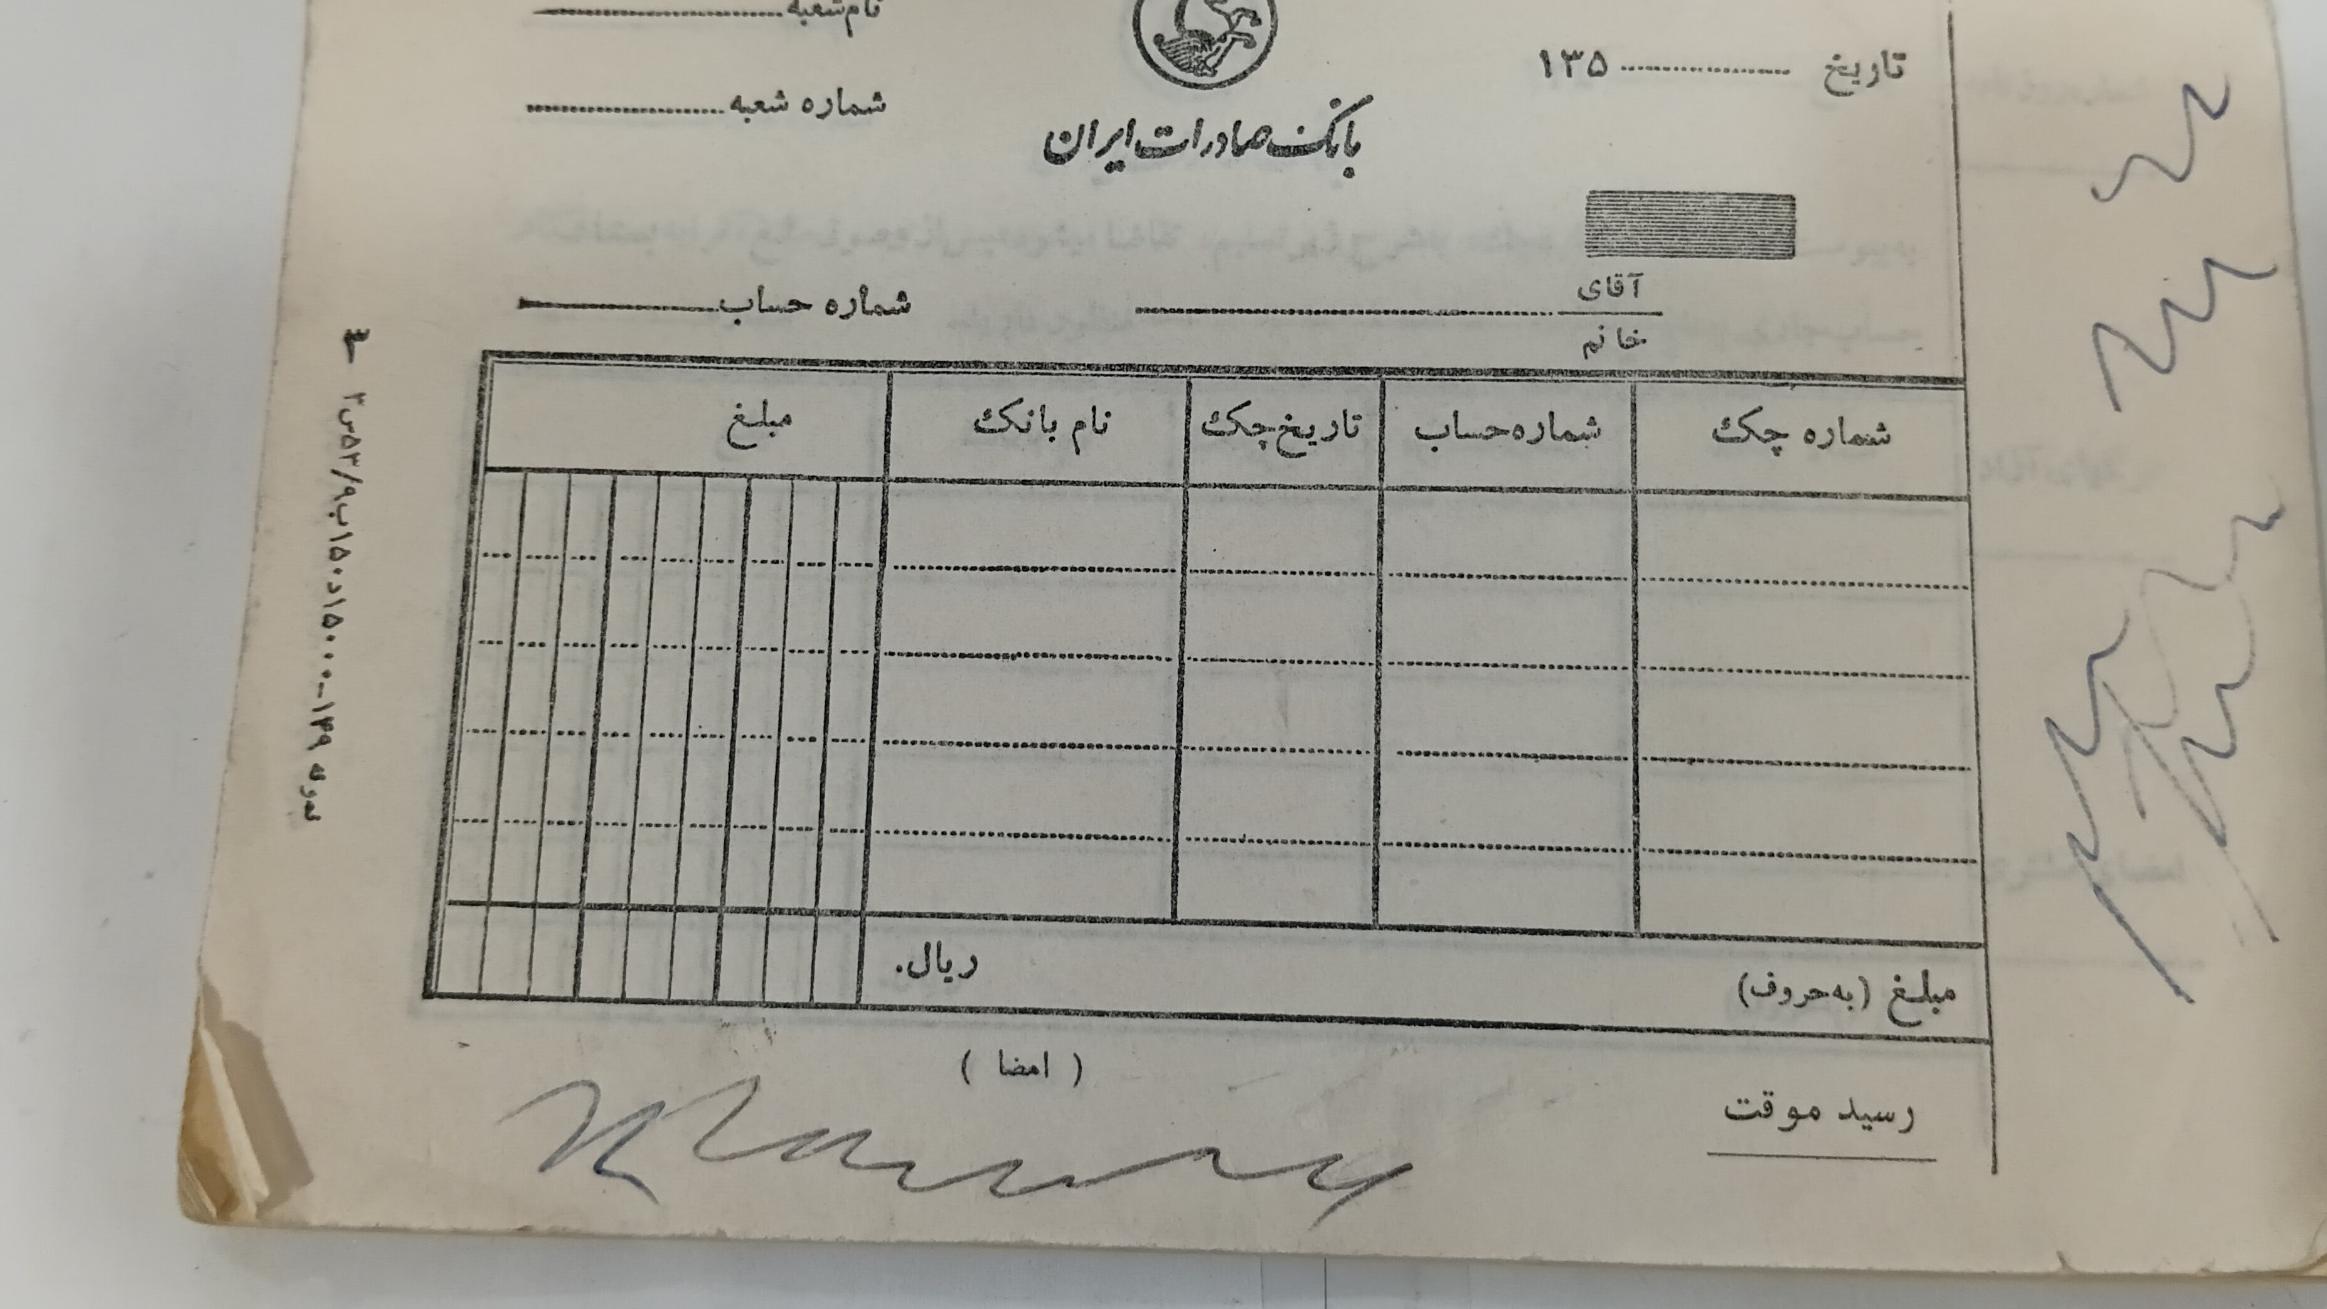 نام شعبه
تاریخ ۱۳۵
شماره شعبه
بانک صادرات ایران
آقای
خانم
شماره حساب
شماره چک شماره حساب تاریخ چک نام بانک مبلغ
مبلغ (به حروف) ریال.
(امضا)
رسید موقت